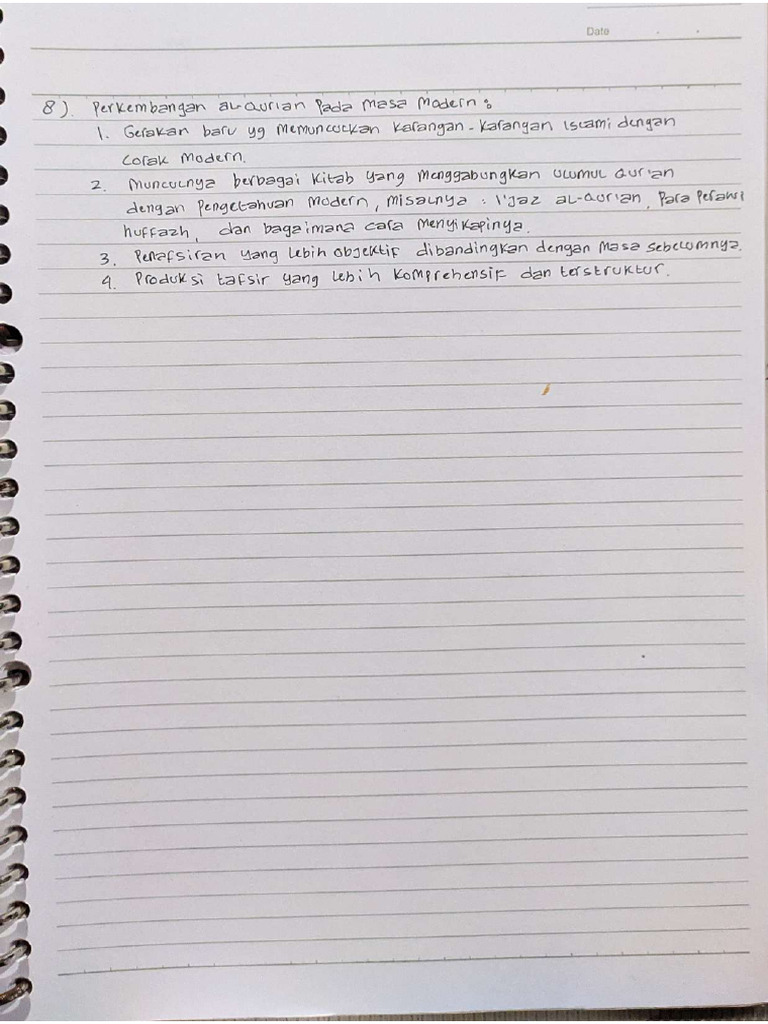 Date
8). Perkembangan al-Qur'an Pada Masa Modern :
1. Gerakan baru yg memunculkan karangan-karangan islami dengan
corak modern.
2. Munculnya berbagai kitab yang menggabungkan ulumul Qur'an
dengan pengetahuan modern, misalnya : I'jaz al-Qur'an, Para Perawi
huffazh, dan bagaimana cara menyikapinya.
3. Penafsiran yang lebih objektif dibandingkan dengan masa sebelumnya.
4. Produksi tafsir yang lebih komprehensif dan terstruktur.